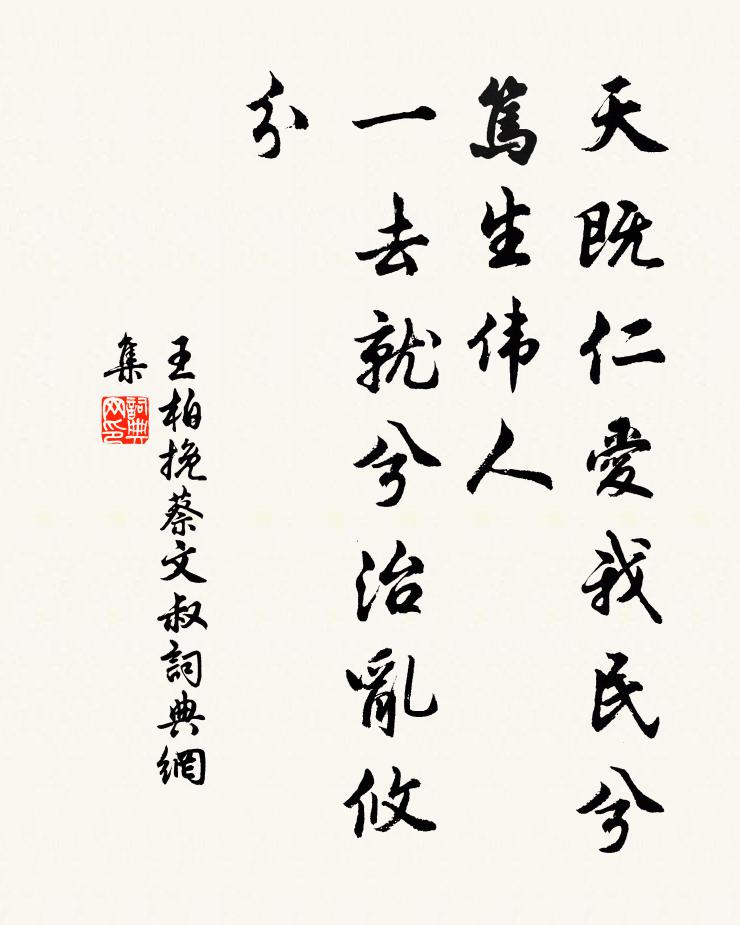 天既仁愛我民兮
篤生伟人
一去就兮治亂攸
分
王柏挽蔡文叔詞典網
集
詞典
网印